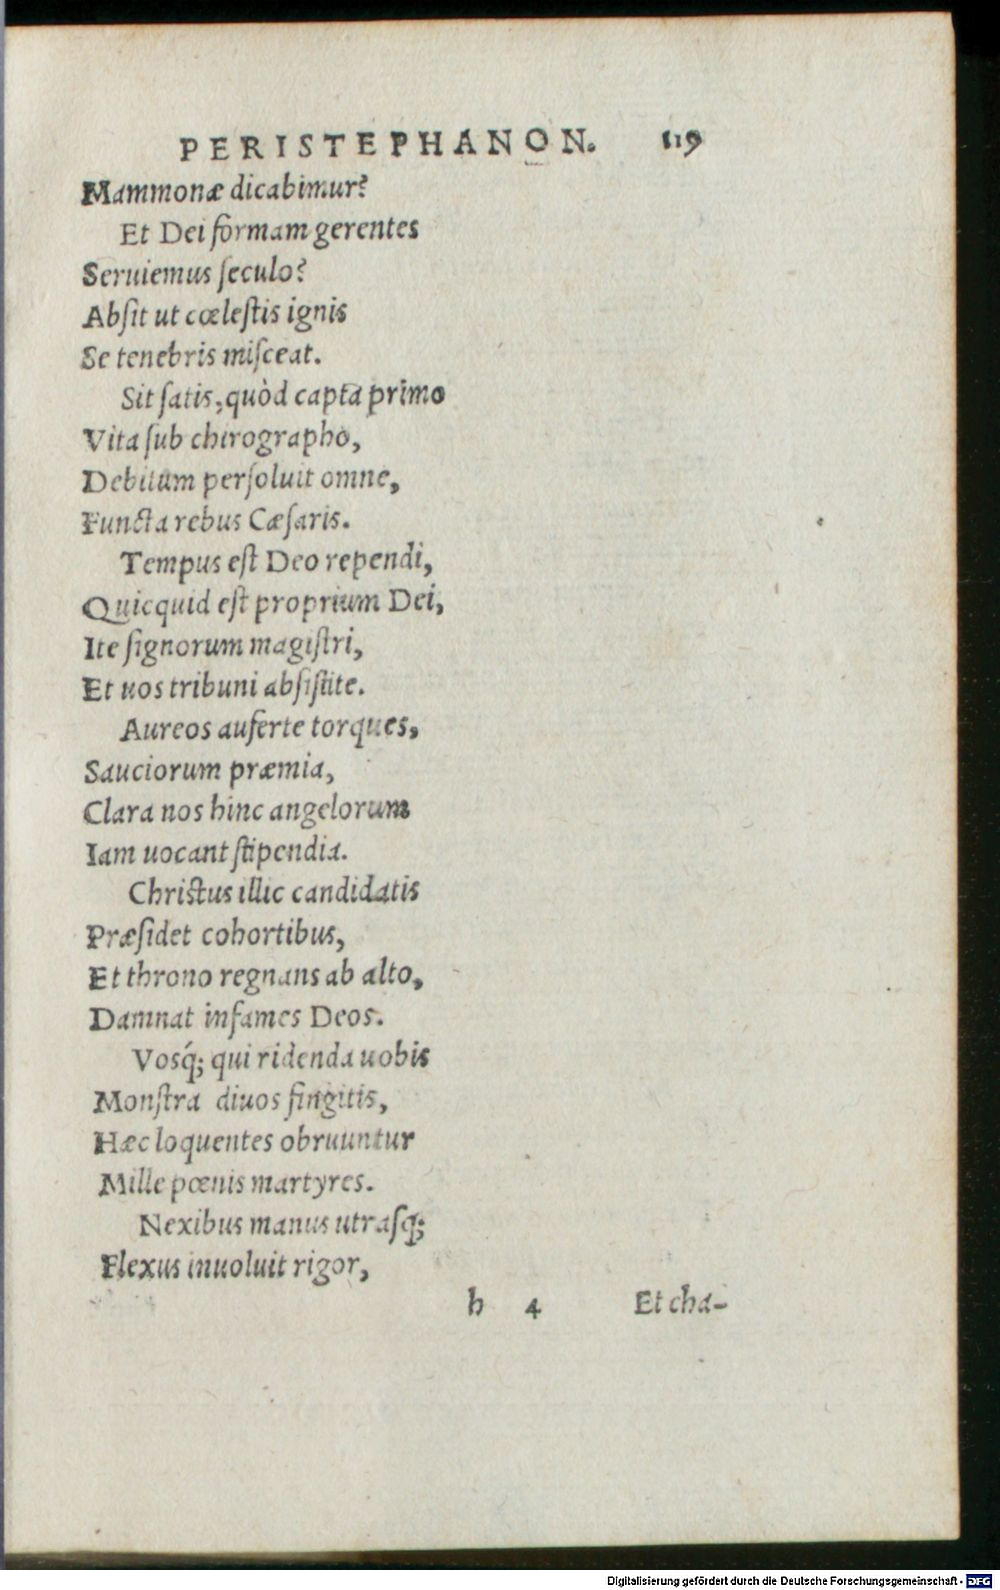 PERISTEPHANON. 119
Mammonæ dicabimur?
Et Dei formam gerentes
Seruiemus ſeculo?
Abſit ut cœleſtis ignis
Se tenebris miſceat.
Sit ſatis, quòd capta primo
Vita ſub chirographo,
Debitum perſoluit omne,
Functa rebus Cæſaris.
Tempus eſt Deo rependi,
Quicquid eſt proprium Dei,
Ite ſignorum magiſtri,
Et uos tribuni abſiſtite.
Aureos auferte torques,
Sauciorum præmia,
Clara nos hinc angelorum
Iam uocant ſtipendia.
Chriſtus illic candidatis
Præſidet cohortibus,
Et throno regnans ab alto,
Damnat infames Deos.
Vosq́; qui ridenda uobis
Monſtra diuos fingitis,
Hæc loquentes obruuntur
Mille pœnis martyres.
Nexibus manus utraſq;
Flexus inuoluit rigor,
h 4 Et cha-
Digitalisierung gefördert durch die Deutsche Forschungsgemeinschaft - DFG